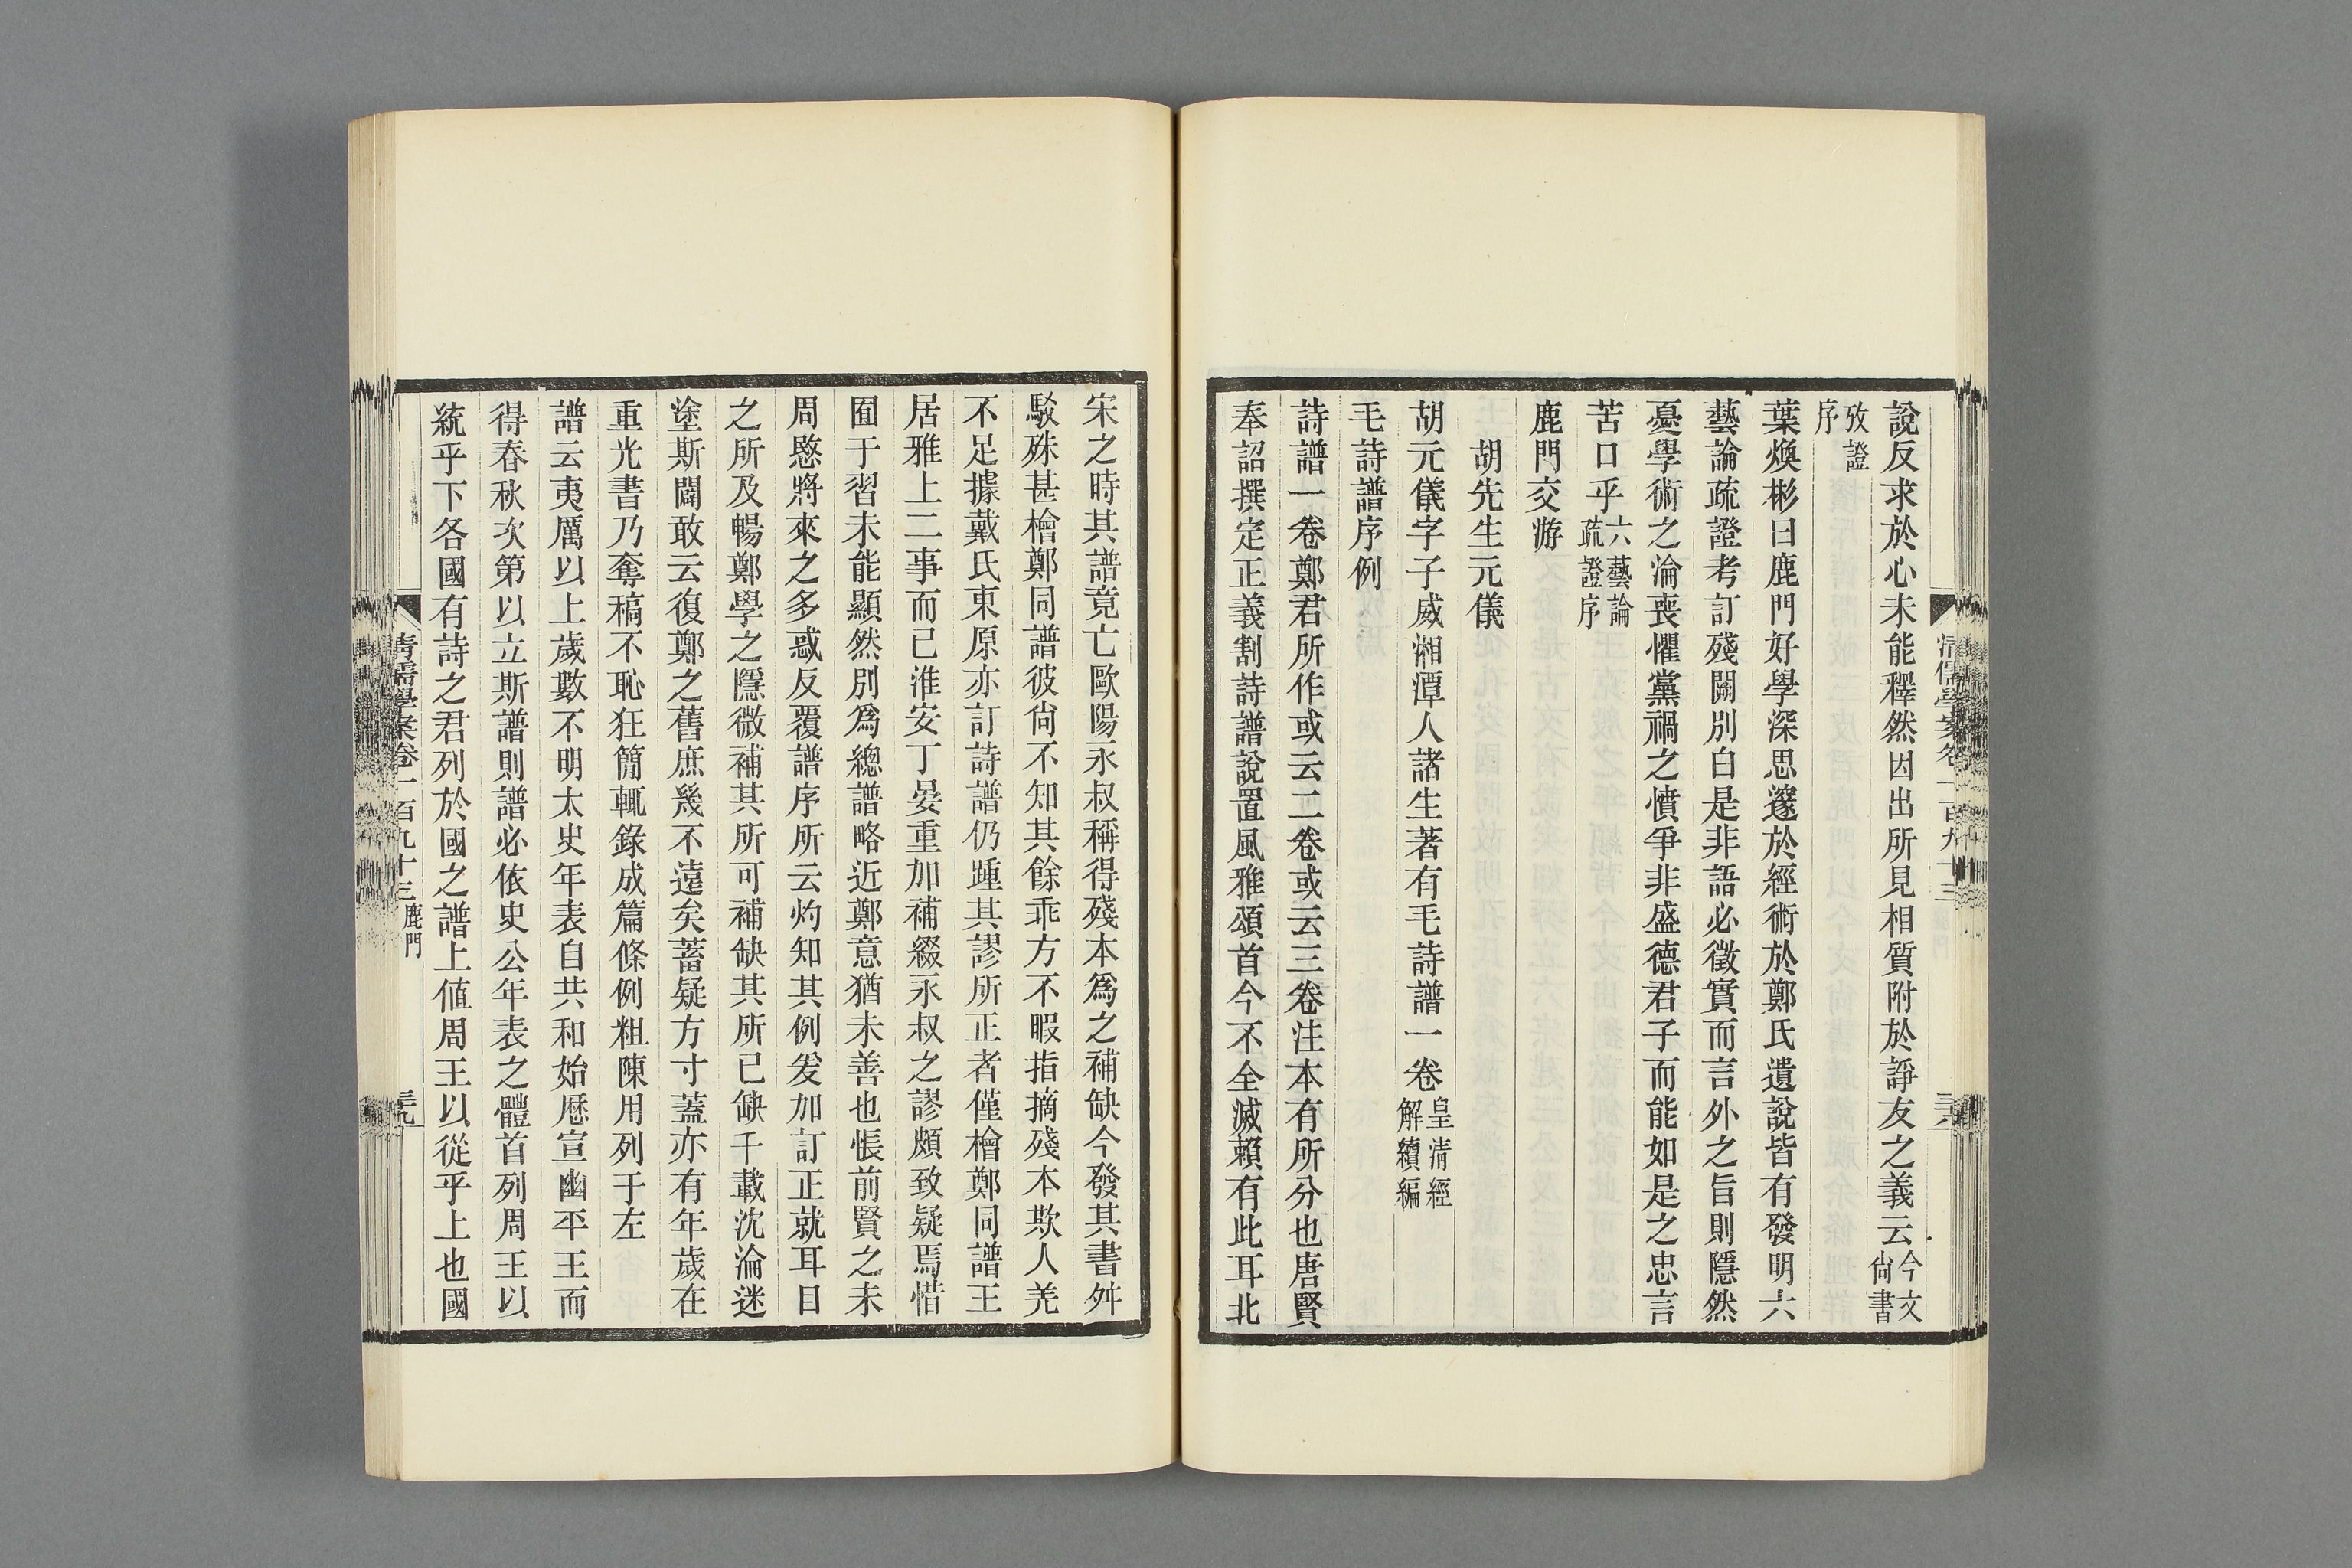 說反求於心未能釋然因出所見相質附於諍友之義云今文尙書
攷證序
葉煥彬曰鹿門好學深思邃於經術於鄭氏遺說皆有發明六
藝論疏證考訂殘闕別白是非語必徵實而言外之旨則隱然
憂學術之淪喪懼黨禍之憤爭非盛德君子而能如是之忠言
苦口乎六藝論疏證序
鹿門交游
胡先生元儀
胡元儀字子威湘潭人諸生著有毛詩譜一卷皇清經解續編
毛詩譜序例
詩譜一卷鄭君所作或云二卷或云三卷注本有所分也唐賢
奉詔撰定正義割詩譜說置風雅頌首今不全滅賴有此耳北
清儒學案卷一百九十三
三八
宋之時其譜竟亡歐陽永叔稱得殘本爲之補缺今發其書舛
駁殊甚檜鄭同譜彼尙不知其餘乖方不暇指摘殘本欺人羌
不足據戴氏東原亦訂詩譜仍踵其謬所正者僅檜鄭同譜王
居雅上二事而已淮安丁晏重加補綴永叔之謬頗致疑焉惜
囿于習未能顯然別爲總譜略近鄭意猶未善也悵前賢之未
周愍將來之多惑反覆譜序所云灼知其例爰加訂正就耳目
之所及暢鄭學之隱微補其所可補缺其所已缺千載沈淪迷
塗斯闢敢云復鄭之舊庶幾不遠矣蓄疑方寸蓋亦有年歲在
重光書乃奪稿不恥狂簡輒錄成篇條例粗陳用列于左
譜云夷厲以上歲數不明太史年表自共和始歷宣幽平王而
得春秋次第以立斯譜則譜必依史公年表之體首列周王以
統乎下各國有詩之君列於國之譜上値周王以從乎上也國
清儒學案卷一百九十三 鹿門
三九